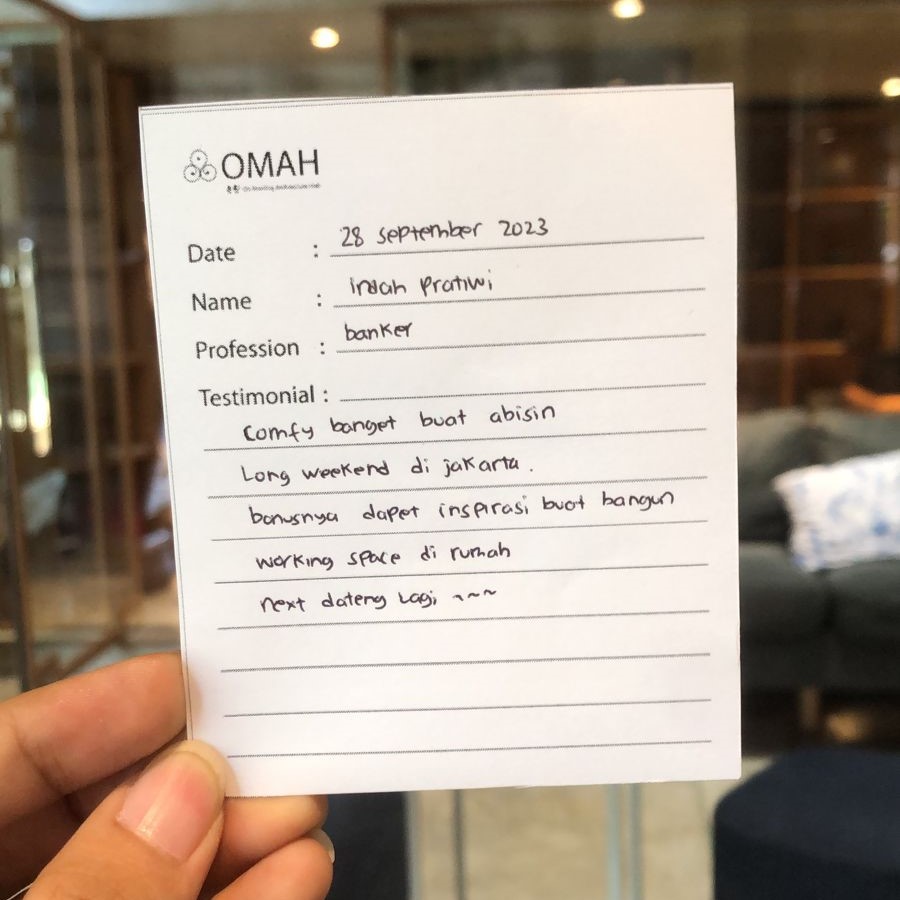 OMAH
Date : 28 september 2023
Name : indah pratiwi
Profession : banker
Testimonial :
Comfy banget buat abisin
Long weekend di jakarta .
bonusnya dapet inspirasi buat bangun
working space di rumah
next dateng lagi ~~~